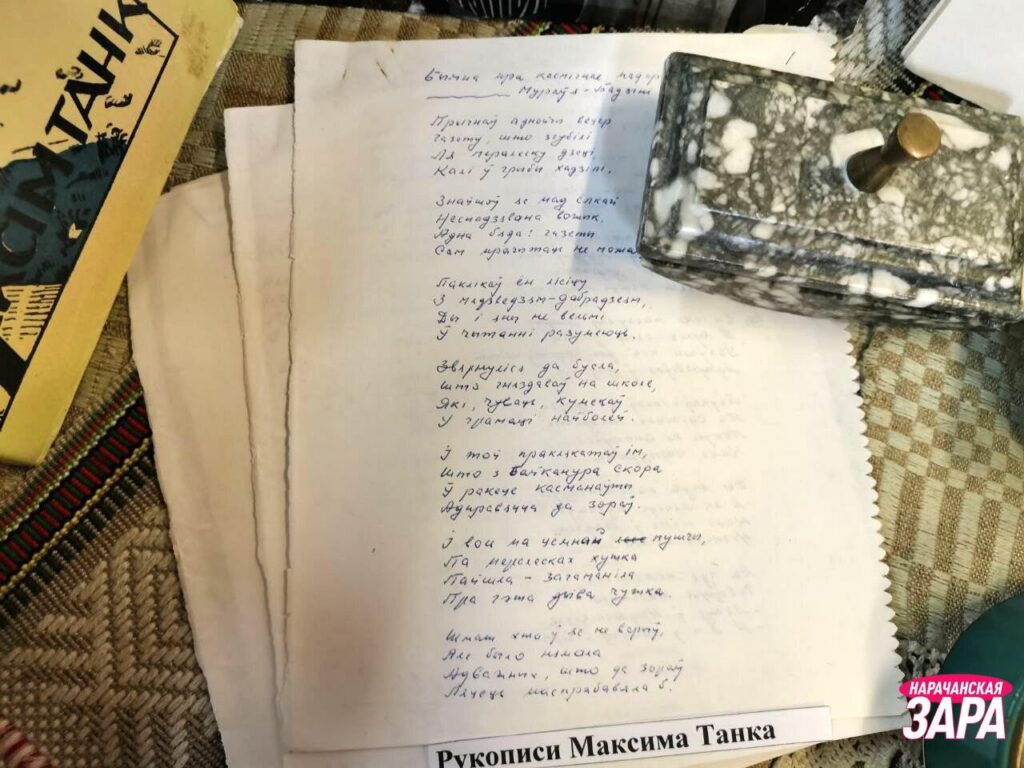 МАКСІМ ТАНК
Быліна пра касмічнае падар
Мураўя-Бадзіні
Прыснаў аднойчы вецер
Газету, што згубілі
Ля пералеску дзеці,
Калі ў грыбы хадзілі.
Знайшоў яе пад ёлкай
Неспадзявана вожык.
Адна бяда: газеты
Сам прачытаць не можа
Паклікаў ён лісіцу
З мядзведзем-дабрадзеем,
Ды і яны не вельмі
Ў чытанні разумеюць.
Звярнуліся да бусла,
Што гняздаваў на школе,
Які, чуваць, кумекаў
У грамаце найболей.
І той пракляктаў ім,
Што з Байканура скора
Ў ракеце касманаўты
Адправяцца да зораў.
І вось па цёмнай пушчы,
Па пералесках хутка
Пайшла - загаманіла
Пра гэта дзіва чутка.
Шмат хто ў яе не верыў,
Але было нямала
Адважных, што да зораў
Ляцець паспрабавала б.
Рукописи Максима Танка
НАРАЧАНСКАЯ
ЗАРА